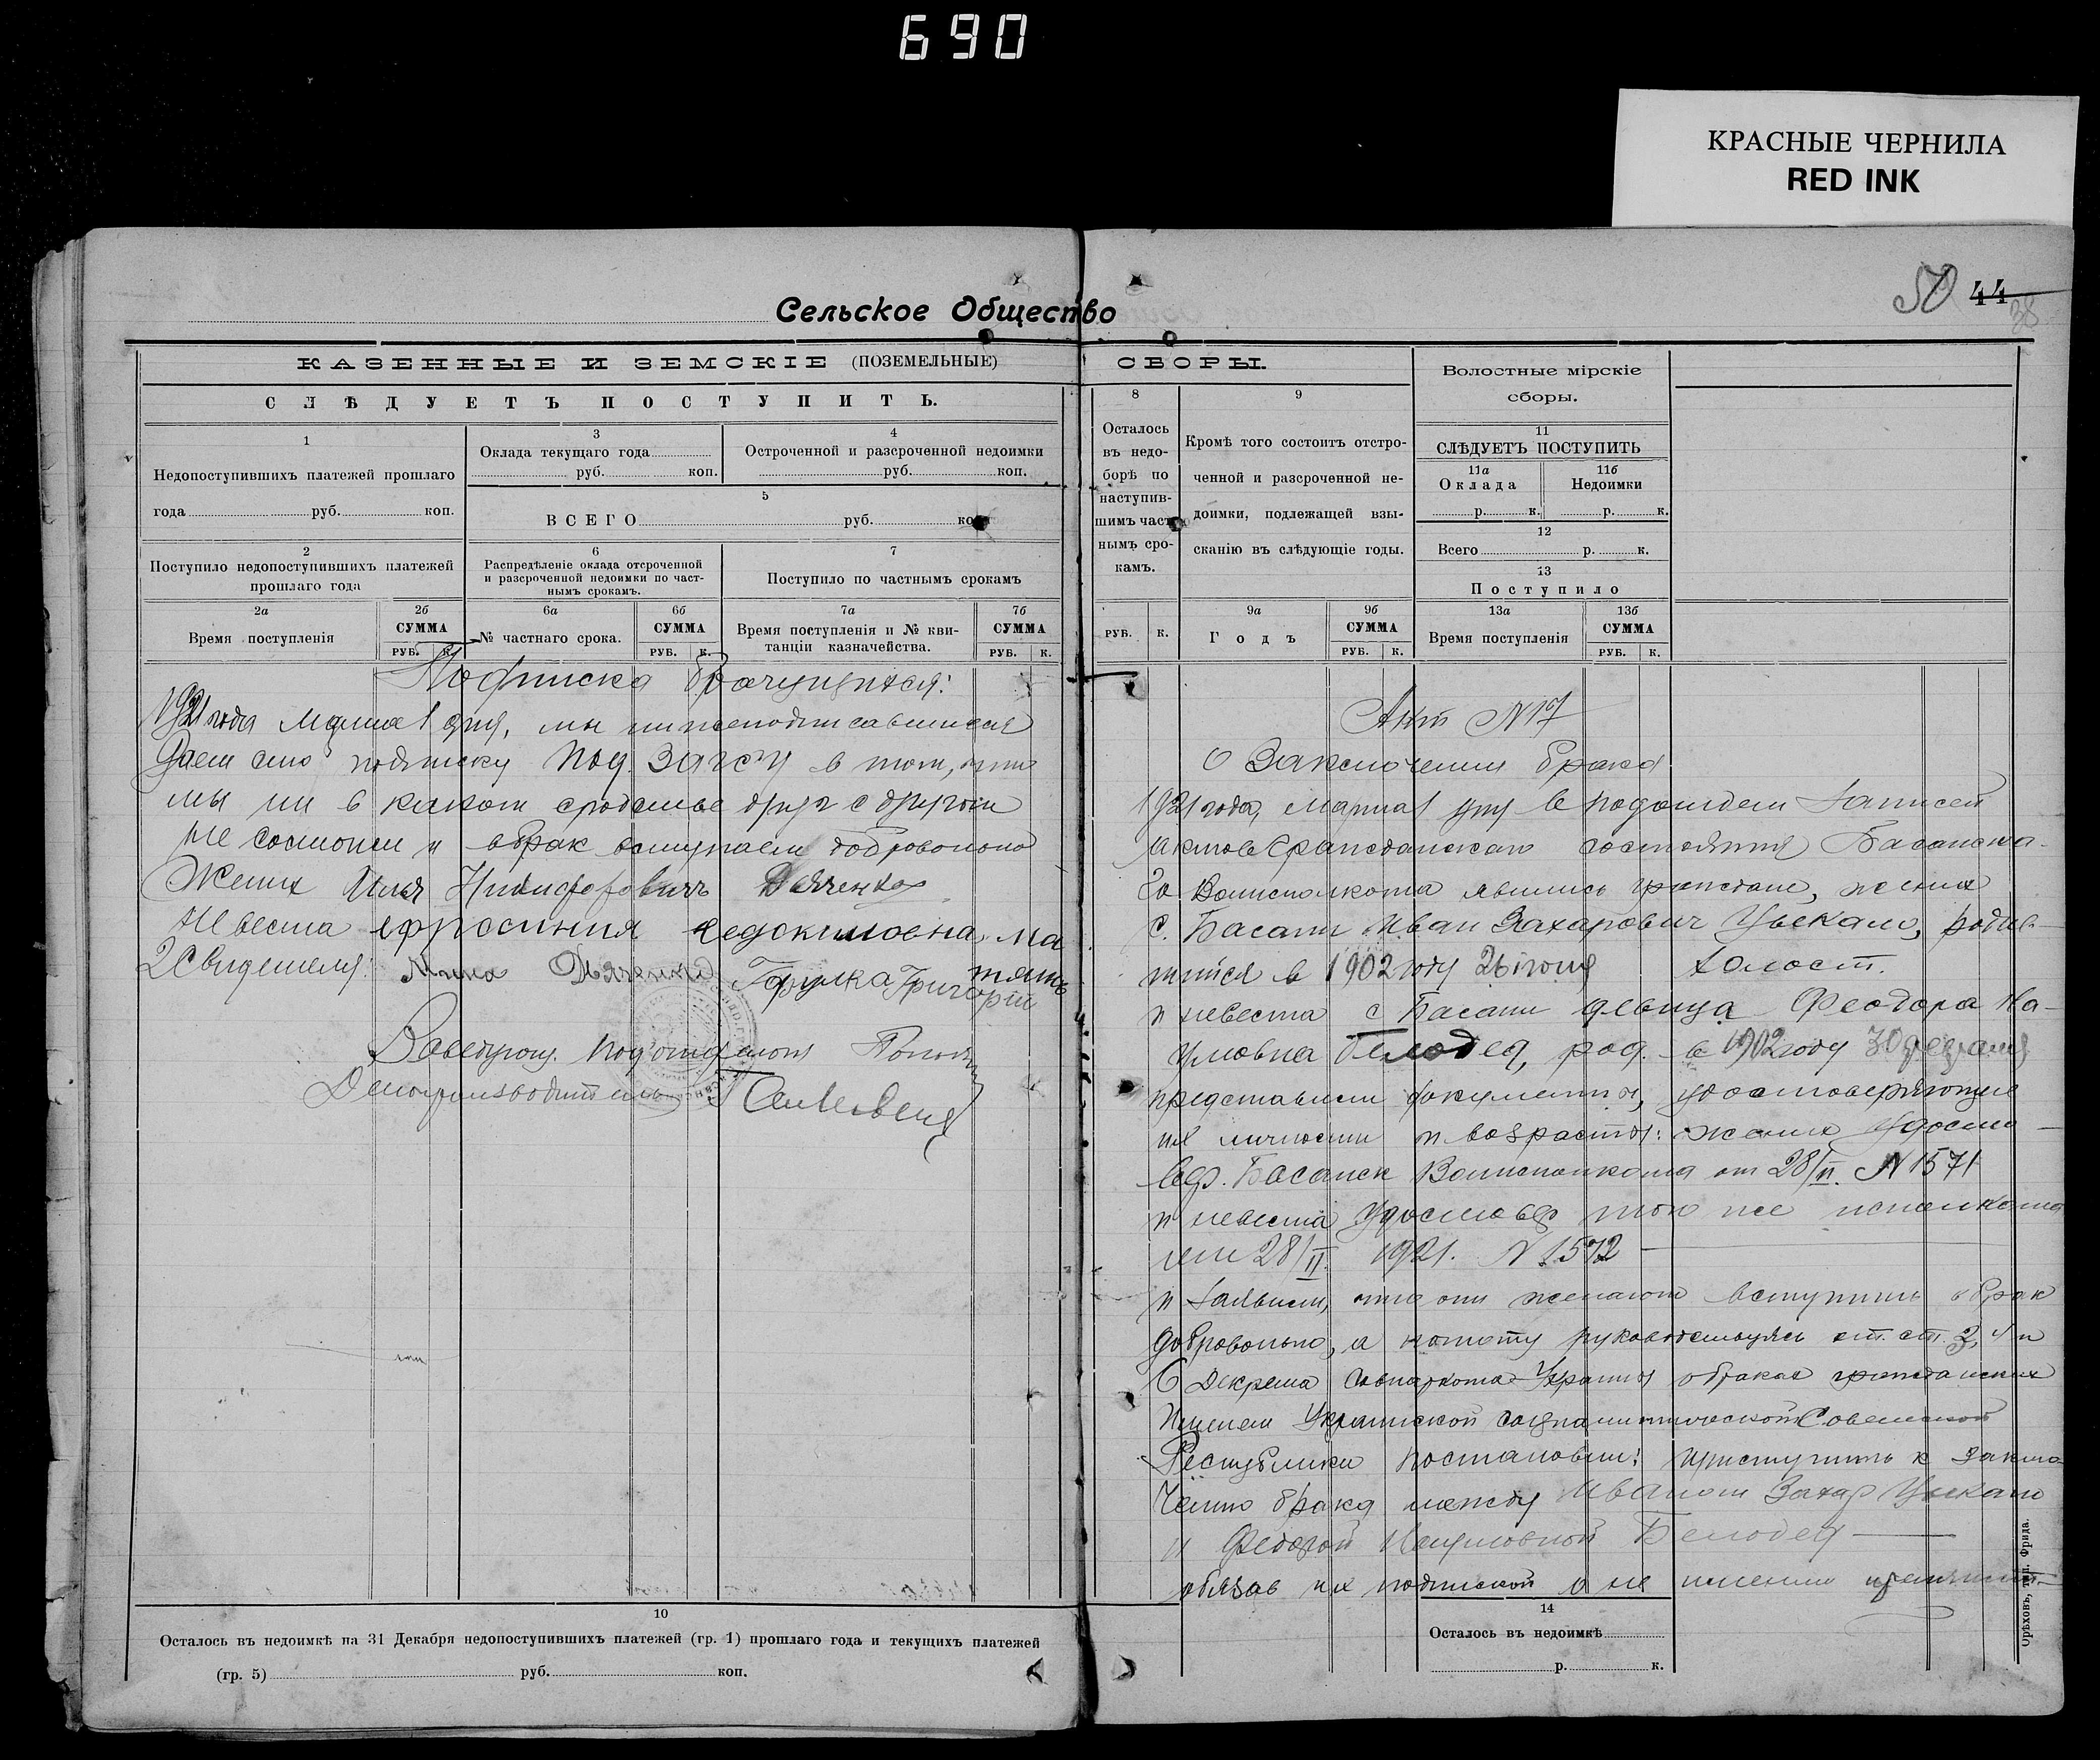 690
КРАСНЫЕ ЧЕРНИЛА
RED INK
50 44
38
Сельское Общество
КАЗЕННЫЕ И ЗЕМСКІЕ (ПОЗЕМЕЛЬНЫЕ)
СЛѢДУЕТЪ ПОСТУПИТЬ.
1
Недопоступившихъ платежей прошлаго
года руб. коп.
3
Оклада текущаго года
руб. коп.
4
Остроченной и разсроченной недоимки
руб. коп.
5
ВСЕГО руб. коп.
2
Поступило недопоступившихъ платежей
прошлаго года
6
Распредѣленіе оклада отсроченной
и разсроченной недоимки по част-
нымъ срокамъ.
7
Поступило по частнымъ срокамъ
2а
Время поступленія
2б
СУММА
РУБ. К.
6а
№ частнаго срока.
6б
СУММА
РУБ. К.
7а
Время поступленія и № кви-
танціи казначейства.
7б
СУММА
РУБ. К.
Подписка брачущихся:
1921 года Марта 1 дня, мы нижеподписавшиеся
даем сию подписку Под. Загсу в том, что
мы ни в каком сродстве друг с другом
не состоим и в брак вступаем добровольно
Жених Илья Никифоровичъ Дяченко
Невеста ефросиния евдокимовна Ма
тяшъ
2 Свидетеля: Мина Дяченко Гарулка Григорій
Заведующ. Подотделом
Делопроизводитель
10
Осталось въ недоимкѣ на 31 Декабря недопоступившихъ платежей (гр. 1) прошлаго года и текущихъ платежей
(гр. 5) руб. коп.
СБОРЫ.
8
Осталось
въ недо-
борѣ по
наступив-
шимъ част-
нымъ сро-
камъ.
РУБ. К.
9
Кромѣ того состоитъ отстро-
ченной и разсроченной не-
доимки, подлежащей взы-
сканію въ слѣдующіе годы.
9а
Годъ
9б
СУММА
РУБ. К.
Волостные мірскіе
сборы.
11
СЛѢДУЕТЪ ПОСТУПИТЬ
11а
Оклада
р. к.
11б
Недоимки
р. к.
12
Всего р. к.
13
Поступило
13а
Время поступленія
13б
СУММА
РУБ. К.
Акт N 17
О Заключении брака
1921 года, марта 1 дня в подотдел Записей
актов гражданского состояния Басанско-
го Волисполкома явились граждане, жених
с. Басани Иван Захарович Цыкало, родив-
шийся в 1902 году 26 июня холост.
и невеста с Басани девица Феодора На-
умовна Белодед, род. в 1902 году 30 февраля
представили документы, удостоверяющие
их личности и возрасты: жених Удосто-
вер. Басанск Волисполкома от 28/II. N 1571
и невеста Удостовер того же исполкома
от 28/II. 1921. N 1572
и заявили, что они желают вступить в брак
добровольно, а потому руководствуясь ст. ст. 3, 4 и
6 Декрета Совнаркома Украины о браках гражданских
Именем Украинской Социалистической Советской
Республики постановил: приступить к заклю-
чению брака между Иваном Захар Цыкало
и Федорой Наумовной Белодед
обязав их подпиской о не имении препятст-
14
Осталось въ недоимкѣ
р. к.
Орѣховъ, тип. Фрида.